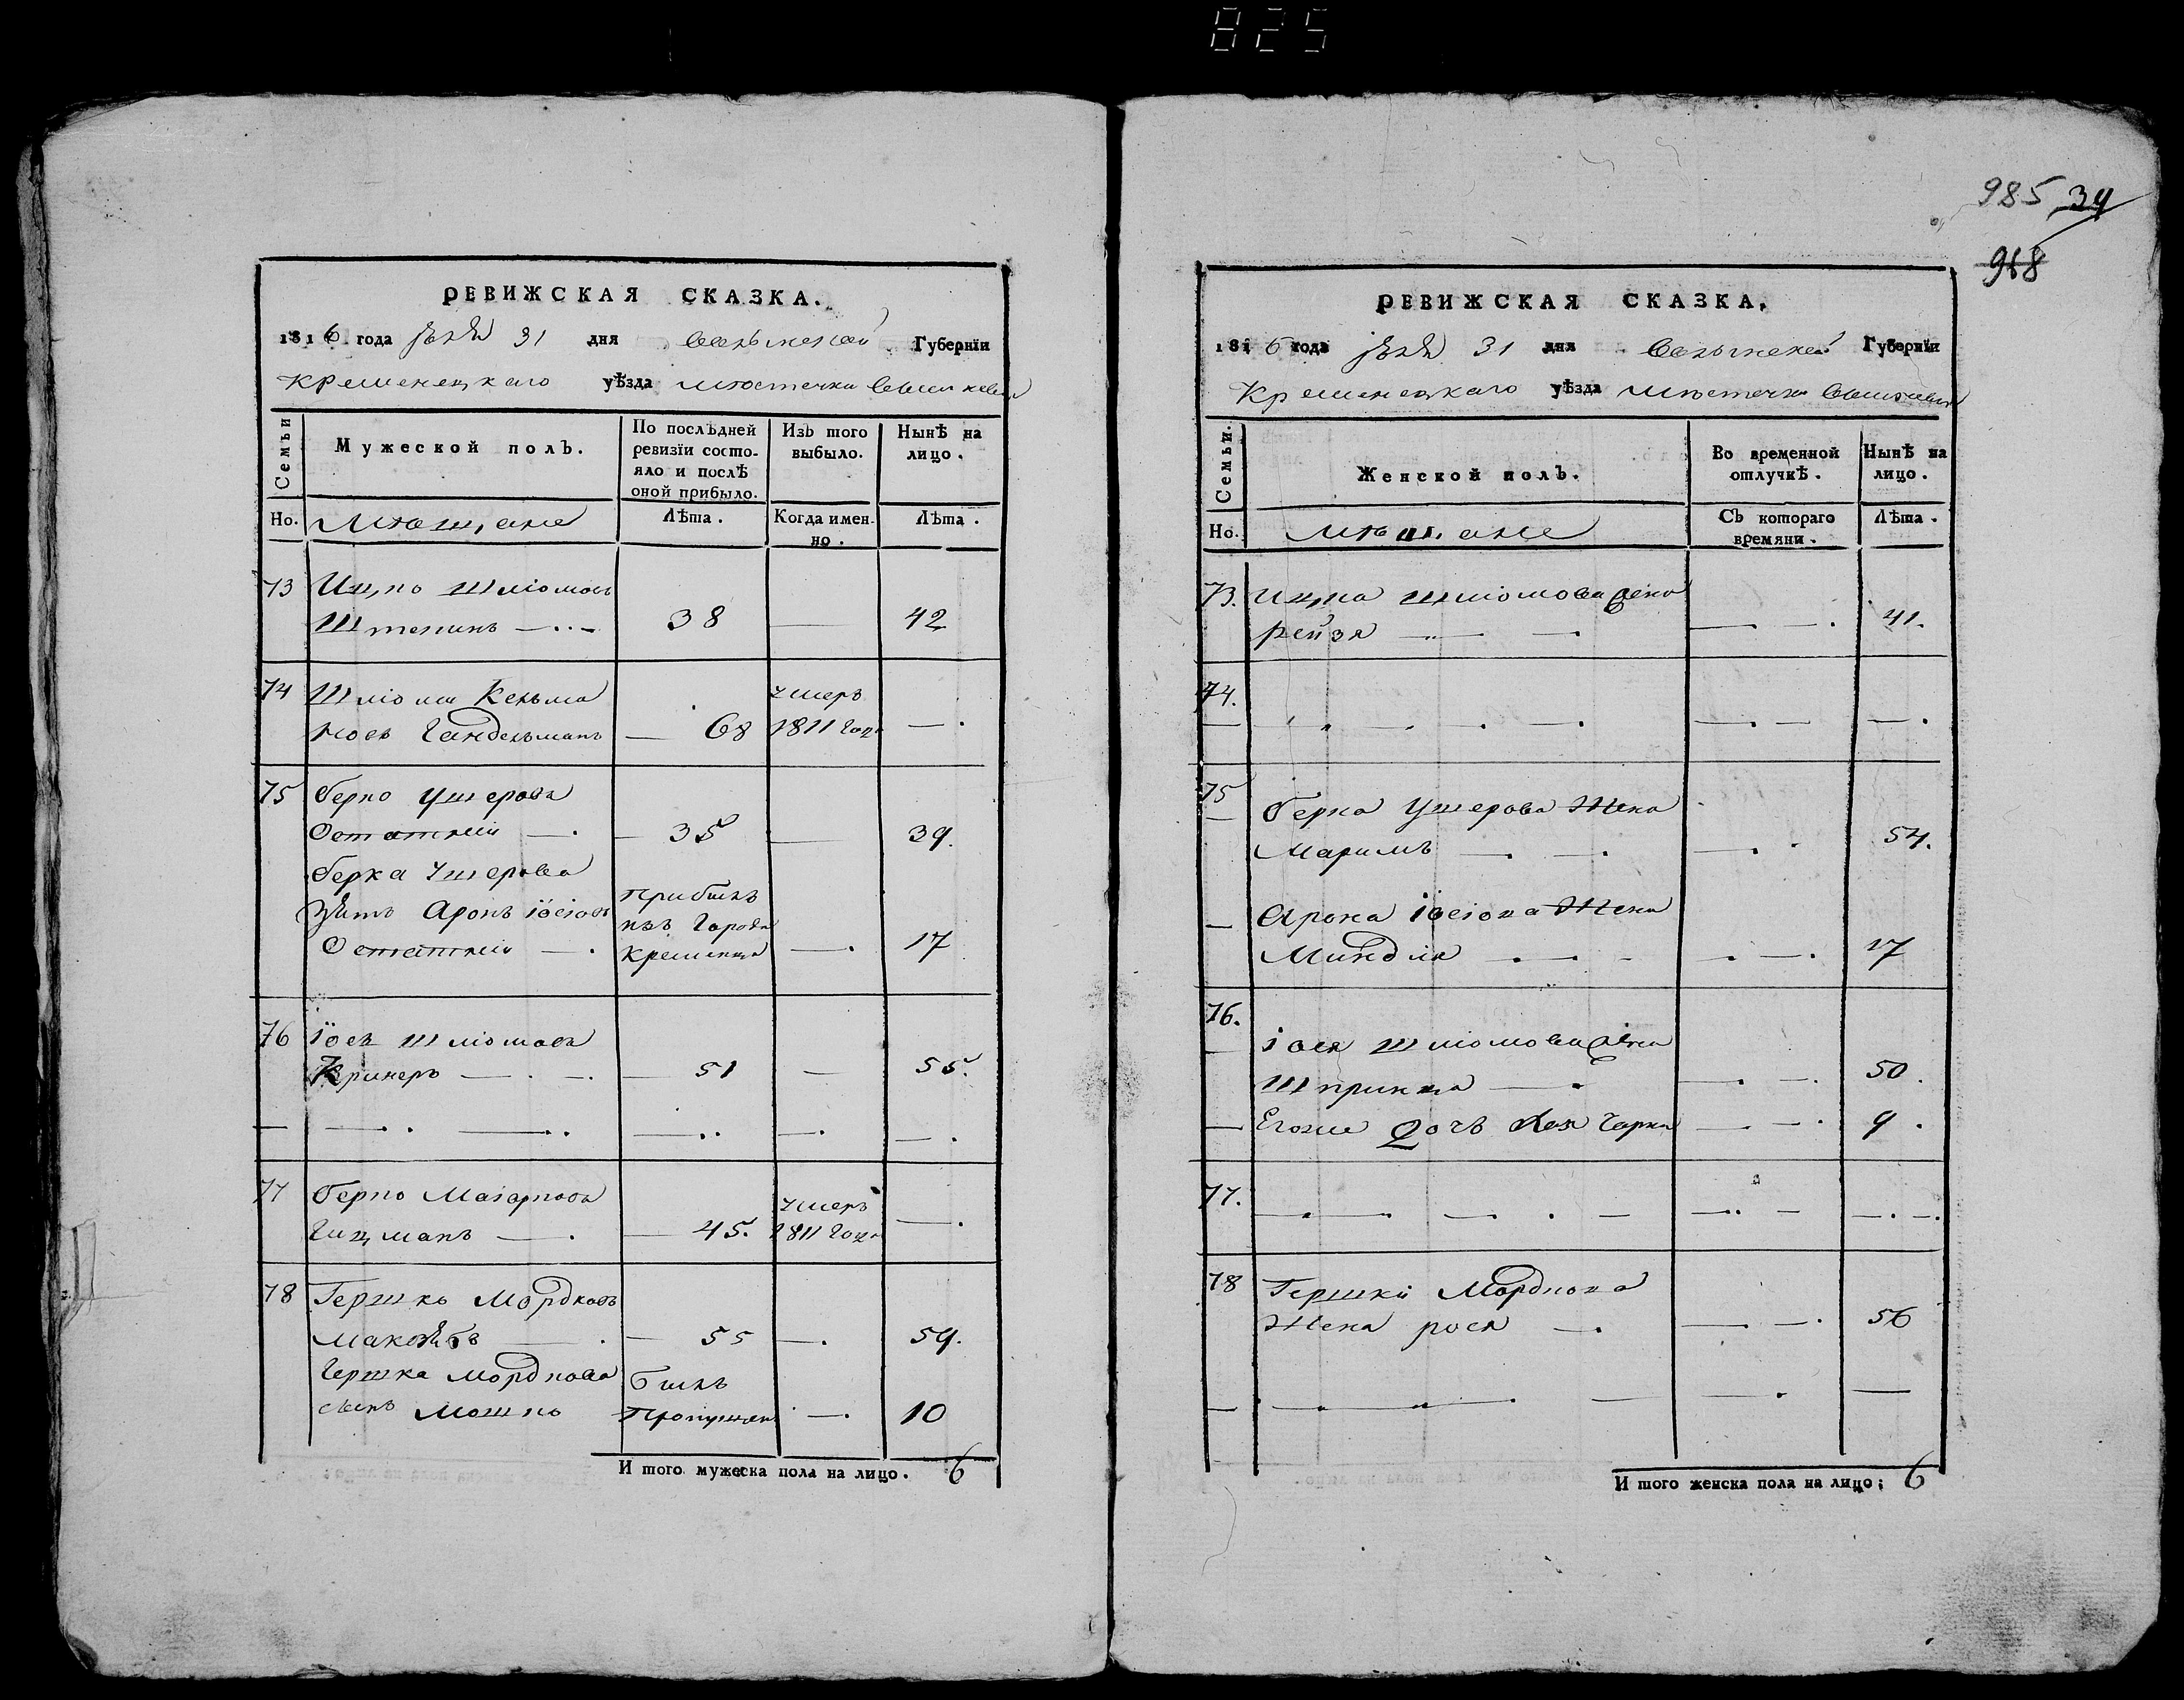 825
985 34
968
РЕВИЖСКАЯ СКАЗКА.
1816 года 31 дня Волынской Губернїи
Кременецкаго уѣзда мѣстечка
Семьи
Мужеской полъ.
По послѣдней ревизїи состояло и послѣ оной прибыло.
Изъ того выбыло.
Нынѣ на лицо.
Но. Мѣщане Лѣта. Когда именно. Лѣта.
73 Ицко Шліомовъ
38 — 42
74 Шліома Кельма умеръ
новъ Гандельманъ — 68 1811 года —.
75 Берко Ушеровъ
Остатній —. — 35 — 39.
Берка Ушерова
Зять Аронъ Іосіовъ прибылъ
изъ города
Остатній —. Кременца —. 17
76 Іось Шліомовъ
— 51 — 55.
77 Берко умеръ
Гицманъ —. — 45. 1811 года —.
78 Гершко Мордковъ
— 55 —. 59.
Гершка Мордкова былъ
сынъ Мошко пропущен —. 10
И того мужеска пола на лицо. 6
РЕВИЖСКАЯ СКАЗКА.
1816 года 31 дня Волынской Губернїи
Кременецкаго уѣзда мѣстечка
Семьи.
Женской полъ.
Во временной отлучкѣ.
Нынѣ на лицо.
Но. Мѣщане Съ котораго времяни. Лѣта.
73. Ицка Шліомова жена
Рейзя 41.
74.
75 Берка Ушерова Жена
Маримъ 54.
Арона Іосіова Жена
Миндля 17
76. Іося Шліомова жена
Шпринца 50.
Егоже дочь Хая Сарка 9.
77.
78 Гершки Мордкова
Жена Рося 56
И того женска пола на лицо; 6